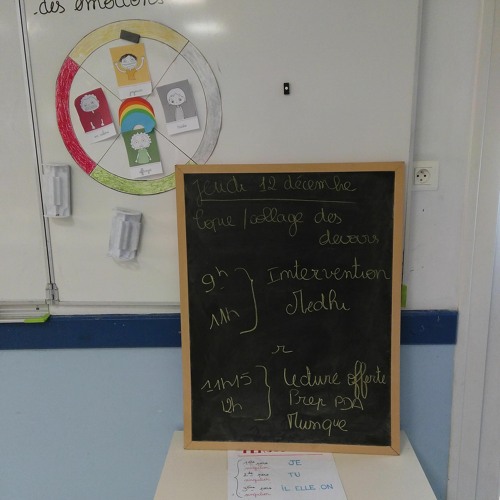 des émotions
Jeudi 12 décembre
Copie/collage des
devoirs
9h
11h
Intervention
Medhi
r
11h15
12h
Lecture offerte
Prep PDA
Musique
JE
TU
IL ELLE ON